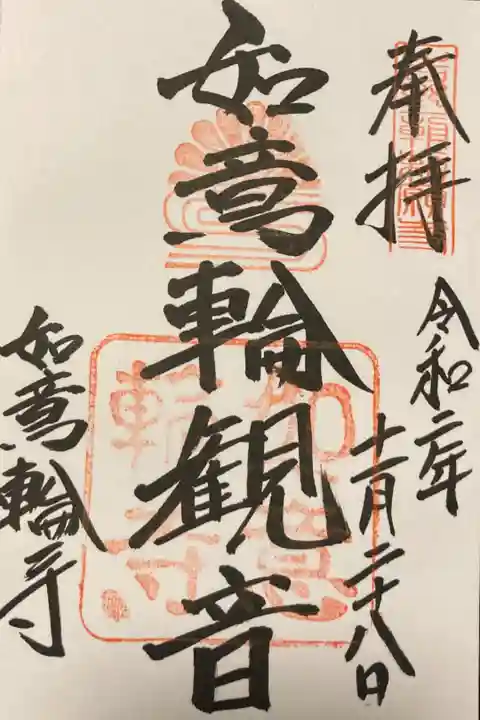 奉拝
令和二年
十一月二十八日
如意輪観音
如意輪寺
如意
輪寺